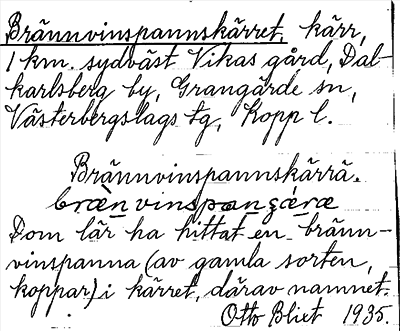 Brännvinspannskärret, kärr,
1 km. sydväst Vikas gård, Dal-
karlsberg by, Grangärde sn,
Västerbergslags tg, Kopp l.
Brännvinspannskärrä.
brænvinspangæræ
Dom lär ha hittat en bränn-
vinspanna (av gamla sorten,
koppar) i kärret, därav namnet.
Otto Blixt 1935.